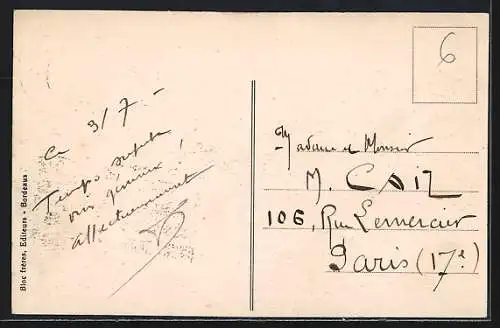 Ce 3/7 -
Temps superbe
affectueusement
6
Madame et Monsieur
M. CAIZ
106, Rue Lemercier
Paris (17e)
Bloc frères, Editeurs - Bordeaux